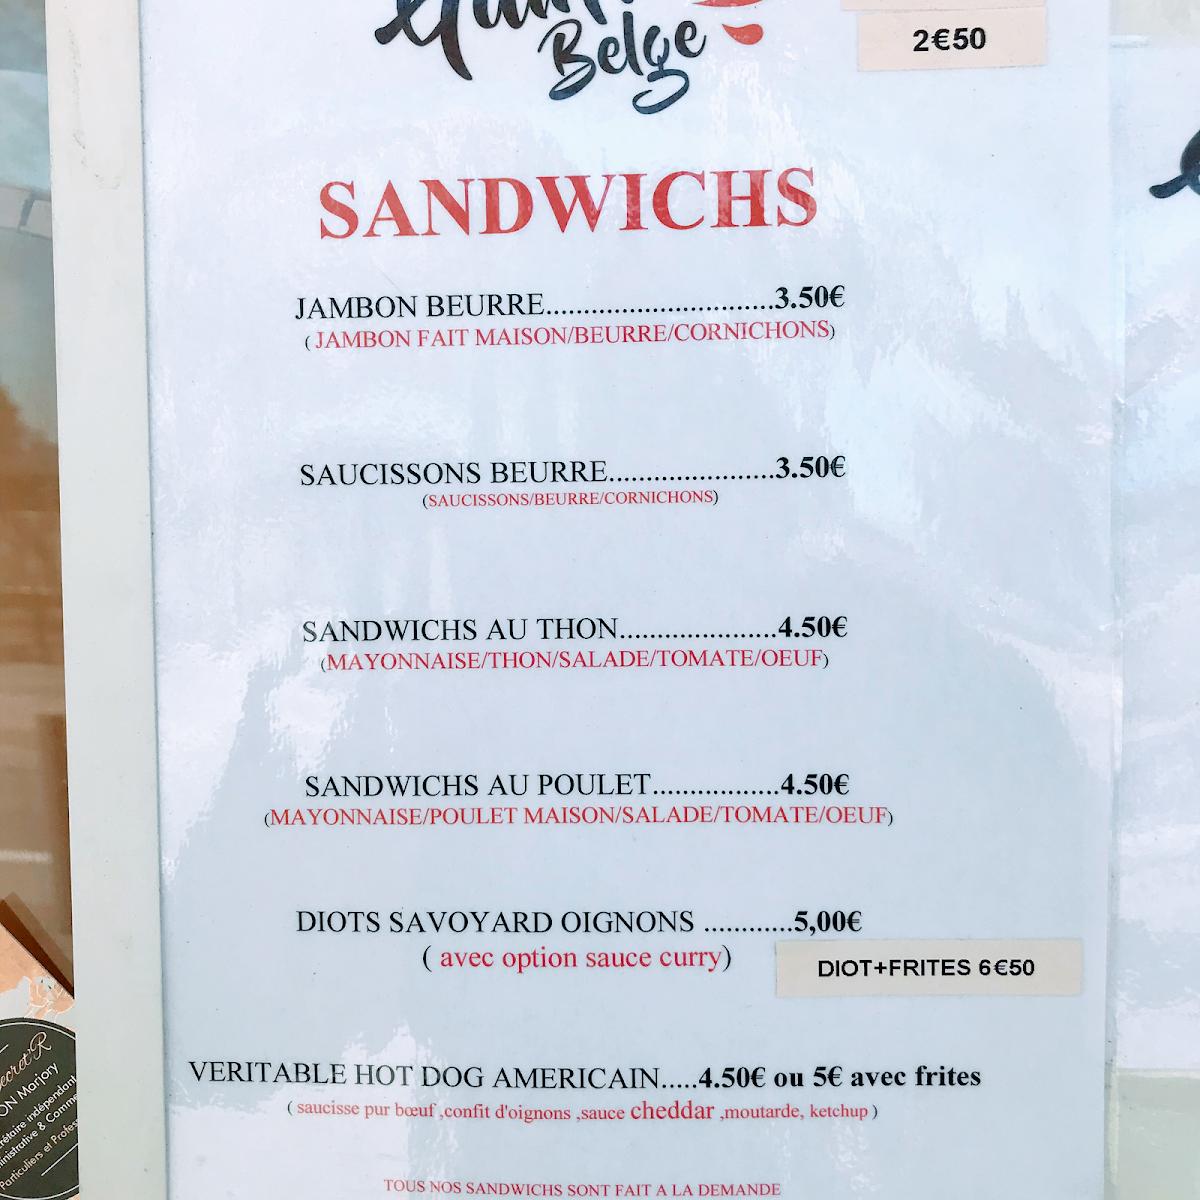 Belge
2€50
SANDWICHS
JAMBON BEURRE............................3.50€
( JAMBON FAIT MAISON/BEURRE/CORNICHONS)
SAUCISSONS BEURRE.....................3.50€
(SAUCISSONS/BEURRE/CORNICHONS)
SANDWICHS AU THON.....................4.50€
(MAYONNAISE/THON/SALADE/TOMATE/OEUF)
SANDWICHS AU POULET.................4.50€
(MAYONNAISE/POULET MAISON/SALADE/TOMATE/OEUF)
DIOTS SAVOYARD OIGNONS ............5,00€
( avec option sauce curry)
DIOT+FRITES 6€50
VERITABLE HOT DOG AMERICAIN.....4.50€ ou 5€ avec frites
( saucisse pur bœuf ,confit d'oignons ,sauce cheddar ,moutarde, ketchup )
TOUS NOS SANDWICHS SONT FAIT A LA DEMANDE
Marjory